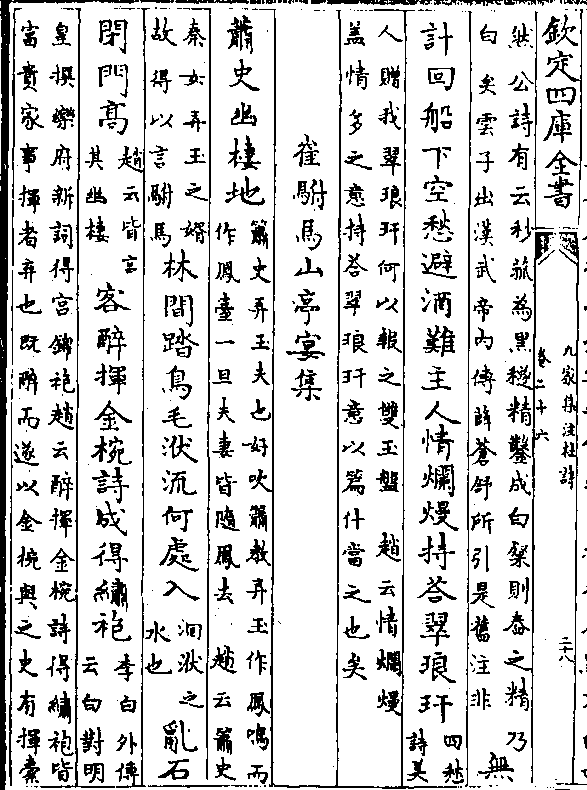 欽定四庫全書
九家集注杜詩
卷二十六
二十八
然公詩有云秋菰為黑穟精鑿成白粲則舂之精乃
白矣雲子出漢武帝內傳薛蒼舒所引是舊注非
無
計回船下空愁避酒難主人情爛熳持荅翠琅玕
四愁
詩美
人贈我翠琅玕何以報之雙玉盤 趙云情爛熳
蓋情多之意持荅翠琅玕意以篇什當之也矣
崔駙馬山亭宴集
蕭史幽棲地
簫史弄玉夫也好吹簫教弄玉作鳳鳴而
作鳳臺一旦夫妻皆隨鳳去 趙云簫史
秦女弄玉之婿
故得以言駙馬
林間踏鳥毛洑流何處入
洄洑之
水也
亂石
閉門髙
趙云皆言
其幽棲
客醉揮金椀詩成得繡袍
李白外傳
云白對明
皇撰樂府新詞得宮錦袍趙云醉揮金椀詩得繡袍皆
富貴家事揮者弃也既醉而遂以金椀與之史有揮橐